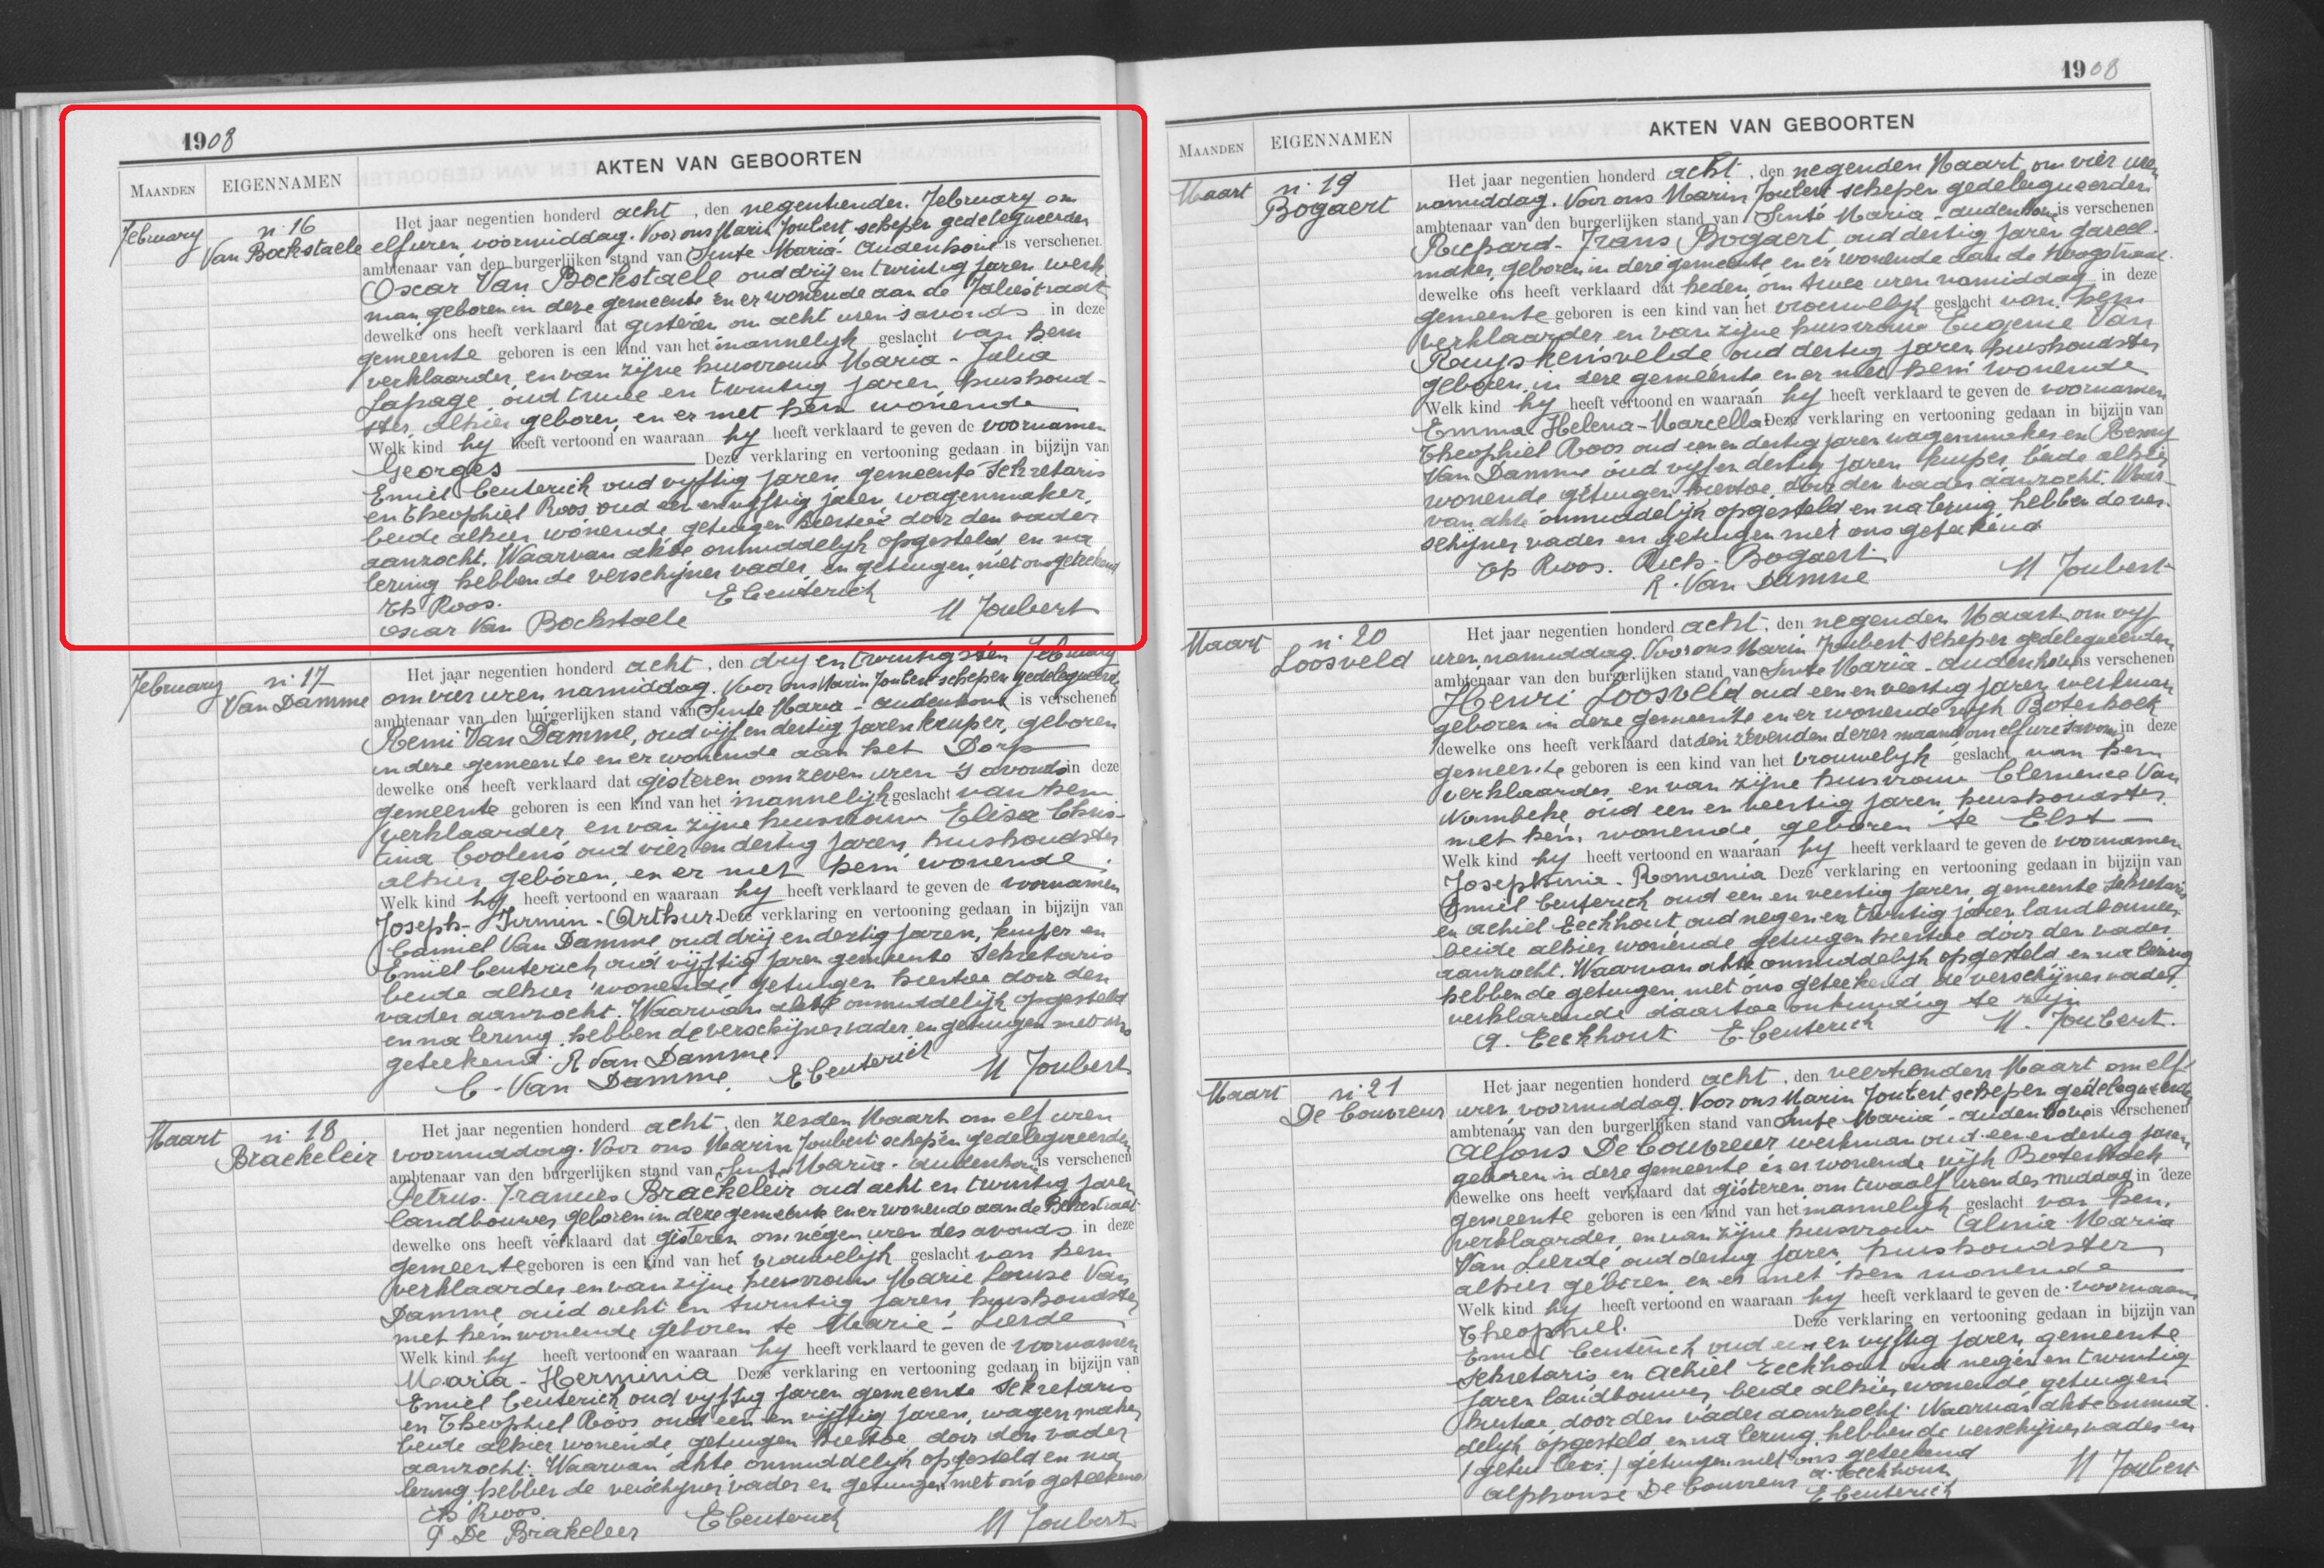 1908
MAANDEN
EIGENNAMEN
AKTEN VAN GEBOORTEN
February
n: 16
Van Bockstaele
Het jaar negentien honderd acht, den negentienden February om
elf uren voormiddag. Voor ons Marin Joubert schepen gedelegueerden
ambtenaar van den burgerlijken stand van Sinte Maria-Audenhove is verschenen
Oscar Van Bockstaele oud drij en twintig jaren werk-
man geboren in deze gemeente en er wonende aan de Jaliestraat
dewelke ons heeft verklaard dat gisteren om acht uren s avonds in deze
gemeente geboren is een kind van het mannelijk geslacht van hem
verklaarder, en van zijne huisvrouw Maria-Julia
Lapage, oud twee en twintig jaren, huishoud-
ster, alhier geboren, en er met hem wonende
Welk kind hy heeft vertoond en waaraan hy heeft verklaard te geven de voornamen
Georges Deze verklaring en vertooning gedaan in bijzijn van
Emiel Ceuterick oud vyftig jaren, gemeente sekretaris
en Theophiel Roos oud een en vyftig jaren, wagenmaker,
beide alhier wonende, getuigen hiertoe door den vader
aanzocht. Waarvan akte onmiddelyk opgesteld en na
lezing hebben de verschijner vader en getuigen met ons geteekend
Th Roos.
E Ceuterick
M Joubert
Oscar Van Bockstaele
February
n: 17
Van Damme
Het jaar negentien honderd acht, den dry en twintigsten February
om vier uren namiddag. Voor ons Marin Joubert schepen gedelegueerd
ambtenaar van den burgerlijken stand van Sinte Maria-Audenhove is verschenen
Remi Van Damme, oud vijf en dertig jaren kuiper, geboren
in deze gemeente en er wonende aan het Dorp
dewelke ons heeft verklaard dat gisteren om zeven uren 's avonds in deze
gemeente geboren is een kind van het mannelijk geslacht van hem
verklaarder, en van zijne huisvrouw Elisa Chris-
tina Coolens oud vier en dertig jaren, huishoudster
alhier geboren, en er met hem wonende
Welk kind hy heeft vertoond en waaraan hy heeft verklaard te geven de voornamen
Joseph-Firmin-Arthur Deze verklaring en vertooning gedaan in bijzijn van
Camiel Van Damme oud drij en dertig jaren, kuiper en
Emiel Ceuterick oud vijftig jaren gemeente sekretaris
beide alhier wonende getuigen hiertoe door den
vader aanzocht. Waarvan akte onmiddelijk opgesteld
en na lezing, hebben de verschijner vader en getuigen met ons
geteekend. R Van Damme.
C. Van Damme.
E Ceuterick
M Joubert
Maart
n: 18
Braekeleir
Het jaar negentien honderd acht, den zesden Maart om elf uren
voormiddag. Voor ons Marin Joubert schepen gedelegueerden
ambtenaar van den burgerlijken stand van Sinte Maria-Audenhove is verschenen
Petrus-Francies Braekeleir oud acht en twintig jaren
landbouwer geboren in deze gemeente en er wonende aan de
dewelke ons heeft verklaard dat gisteren om negen uren des avonds in deze
gemeente geboren is een kind van het vrouwelijk geslacht van hem
verklaarder en van zijne huisvrouw Marie Louise Van
Damme, oud acht en twintig jaren, huishoudster,
met hem wonende geboren te Marie-Lierde
Welk kind hy heeft vertoond en waaraan hy heeft verklaard te geven de voornamen
Maria-Herminia Deze verklaring en vertooning gedaan in bijzijn van
Emiel Ceuterick oud vyftig jaren gemeente sekretaris
en Theophiel Roos oud een en vijftig jaren, wagenmaker
beide alhier wonende, getuigen hiertoe door den vader
aanzocht. Waarvan akte onmiddelijk opgesteld en na
lezing, hebben de verschijner vader en getuigen met ons geteekend
Th Roos.
P De Brakeleer
E Ceuterick
M Joubert
1908
MAANDEN
EIGENNAMEN
AKTEN VAN GEBOORTEN
Maart
n: 19
Bogaert
Het jaar negentien honderd acht, den negenden Maart om vier uren
namiddag. Voor ons Marin Joubert schepen gedelegueerden
ambtenaar van den burgerlijken stand van Sinte Maria-Audenhove is verschenen
Richard-Frans Bogaert, oud dertig jaren gareel-
maker, geboren in deze gemeente en er wonende aan de Hoogstraat.
dewelke ons heeft verklaard dat heden om twee uren namiddag in deze
gemeente geboren is een kind van het vrouwelijk geslacht van hem
verklaarder, en van zijne huisvrouw Eugenie Van
Rauyskensvelde oud dertig jaren huishoudster
geboren in deze gemeente en er met hem wonende
Welk kind hy heeft vertoond en waaraan hy heeft verklaard te geven de voornamen
Emma-Helena-Marcella Deze verklaring en vertooning gedaan in bijzijn van
Theophiel Roos oud een en dertig jaren wagenmaker en Remy
Van Damme oud vijf en dertig jaren kuiper, beide alhier
wonende getuigen hiertoe door den vader aanzocht. Waar-
van akte onmiddelijk opgesteld en na lezing, hebben de ver-
schijner vader en getuigen met ons geteekend
Th Roos. Rich. Bogaert
R. Van Damme
M Joubert
Maart
n: 20
Loosveld
Het jaar negentien honderd acht, den negenden Maart om vyf
uren, namiddag. Voor ons Marin Joubert schepen gedelegueerden
ambtenaar van den burgerlijken stand van Sinte Maria-Audenhove is verschenen
Henri Loosveld oud een en veertig jaren werkman
geboren in deze gemeente en er wonende wijk Boterhoek
dewelke ons heeft verklaard dat den zevenden dezer maand om elf ure savonds in deze
gemeente geboren is een kind van het vrouwelyk geslacht van hem
verklaarder, en van zijne huisvrouw Clemence Van
Wambeke, oud een en veertig jaren, huishoudster,
met hem wonende, geboren te Elst
Welk kind hy heeft vertoond en waaraan hy heeft verklaard te geven de voornamen
Josephinia-Romania Deze verklaring en vertooning gedaan in bijzijn van
Emiel Ceuterick oud een en veertig jaren, gemeente sekretaris
en Achiel Eeckhout, oud negen en twintig jaren landbouwer,
beide alhier wonende getuigen hiertoe door den vader
aanzocht. Waarvan akte onmiddelijk opgesteld en na lezing
hebben de getuigen met ons geteekend de verschijner vader,
verklarende daartoe onkundig te zijn
A. Eeckhout
E. Ceuterick
M. Joubert.
Maart
n: 21
De Couvreur
Het jaar negentien honderd acht, den veertienden Maart om elf
uren voormiddag. Voor ons Marin Joubert schepen gedelegueerde
ambtenaar van den burgerlijken stand van Sinte Maria-Audenhove is verschenen
Alfons De Couvreur werkman oud een en dertig jaren
geboren in deze gemeente en er wonende wijk Boterhoek
dewelke ons heeft verklaard dat gisteren om twaalf uren des middag in deze
gemeente geboren is een kind van het mannelijk geslacht van hem,
verklaarder, en van zijne huisvrouw Almia Maria
Van Lierde oud dertig jaren, huishoudster
alhier geboren en er met hem wonende
Welk kind hy heeft vertoond en waaraan hy heeft verklaard te geven de voornaam
Theophiel. Deze verklaring en vertooning gedaan in bijzijn van
Emiel Ceuterick oud een en vyftig jaren gemeente
sekretaris en Achiel Eeckhout oud negen en twintig
jaren landbouwer, beide alhier wonende getuigen
hiertoe door den vader aanzocht. Waarvan akte onmid-
delyk opgesteld en na lezing hebben de verschijner vader en
getuigen met ons geteekend
Alphonse De Couvreur
A. Eeckhout
E Ceuterick
M Joubert